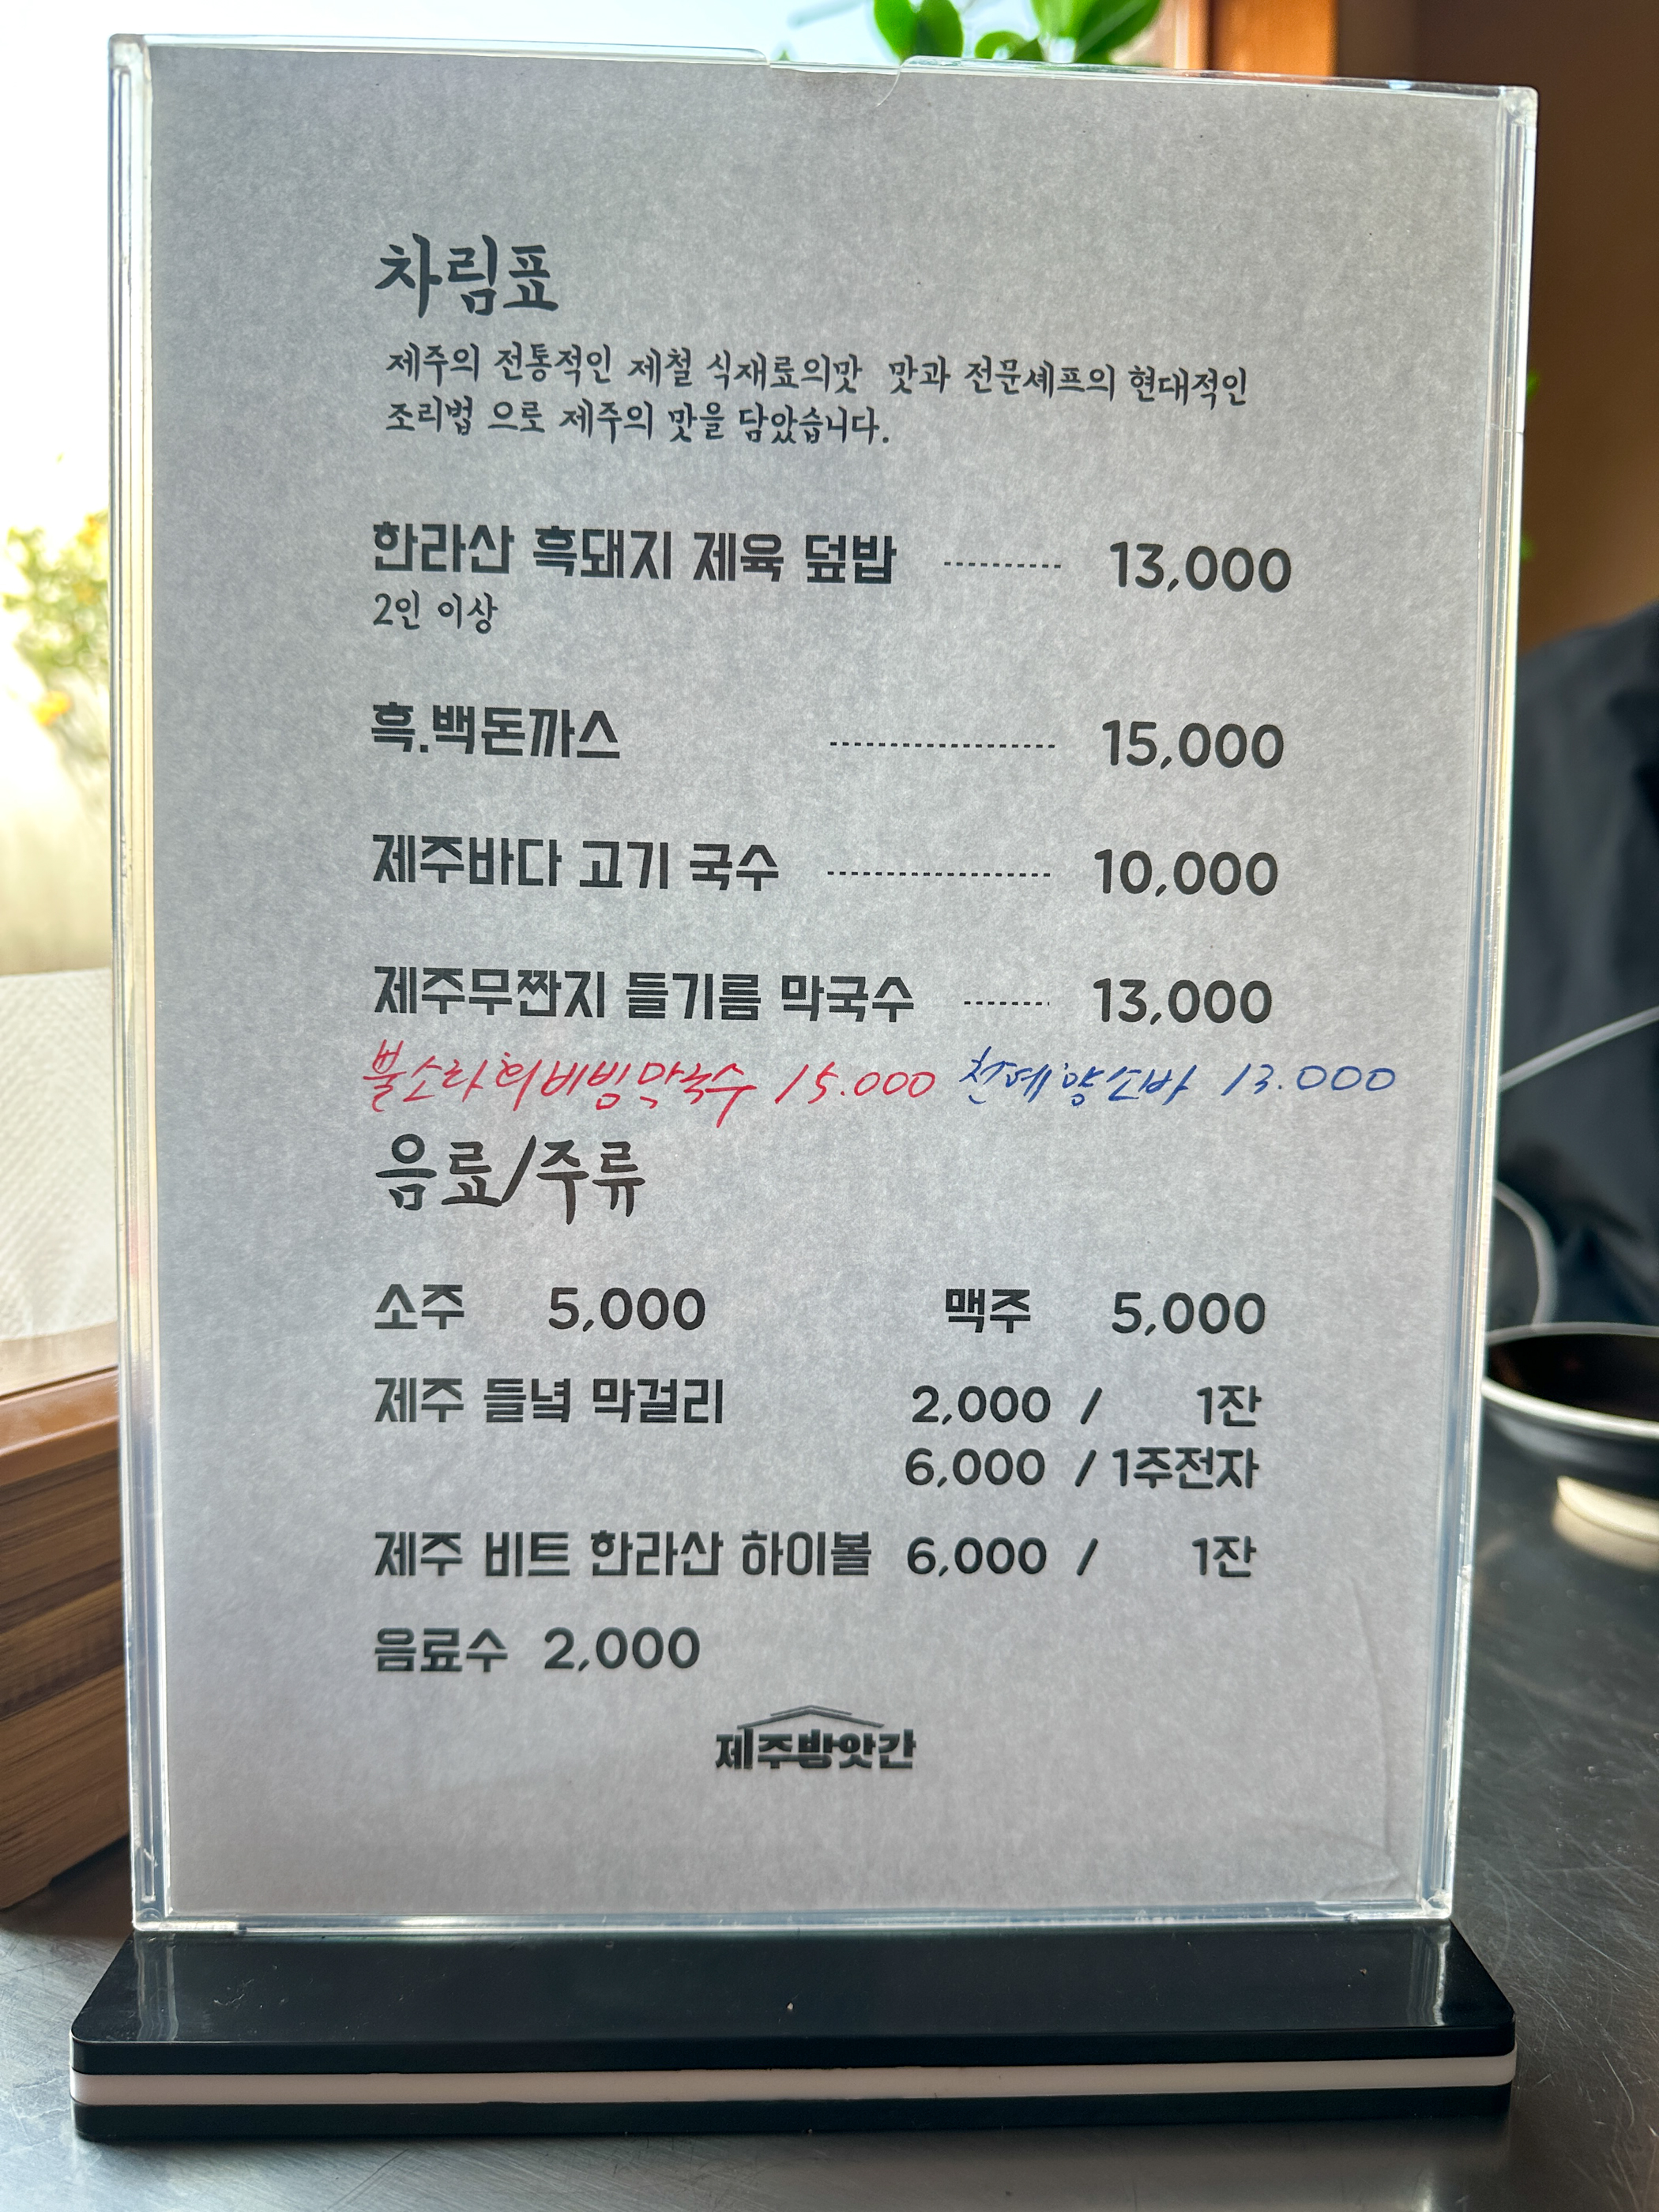 차림표
제주의 전통적인 제철 식재료의맛 맛과 전문셰프의 현대적인
조리법 으로 제주의 맛을 담았습니다.
한라산 흑돼지 제육 덮밥 .......... 13,000
2인 이상
흑.백돈까스 .................... 15,000
제주바다 고기 국수 .................... 10,000
제주무짠지 들기름 막국수 ....... 13,000
뿔소라회비빔막국수 15.000 13.000
음료/주류
소주 5,000 맥주 5,000
제주 들녘 막걸리 2,000 / 1잔
6,000 / 1주전자
제주 비트 한라산 하이볼 6,000 / 1잔
음료수 2,000
제주방앗간